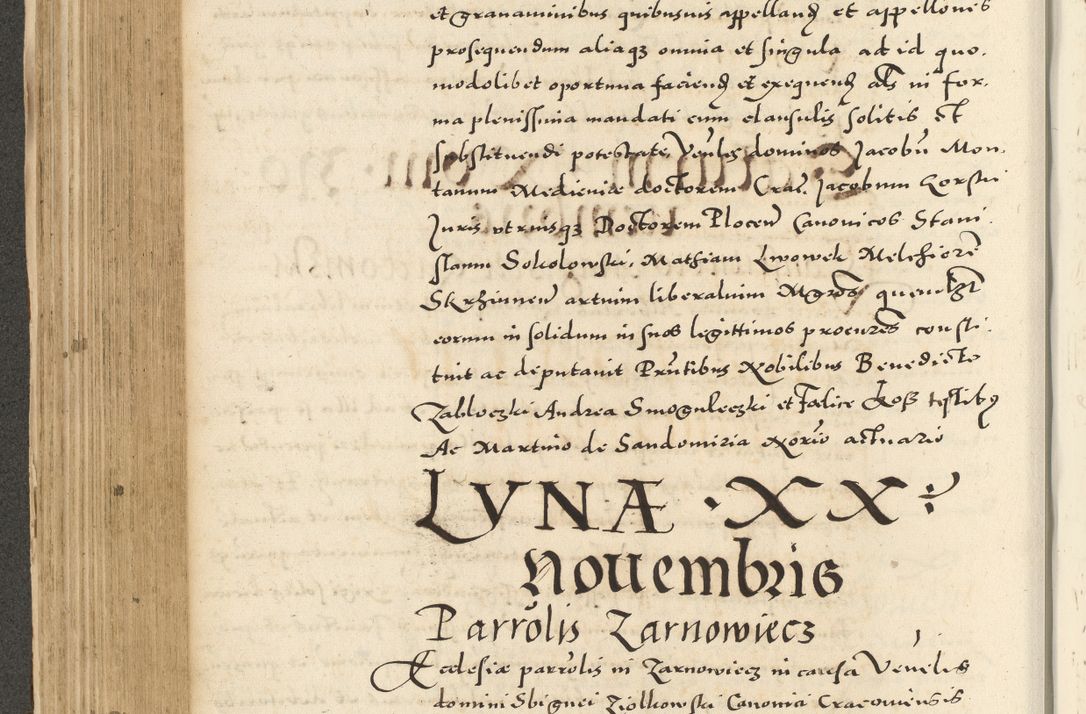 et granaminibus quibusuis appellanđ et appellones
prosequendum aliaq3 omnia et singula ad id quo.
modolibet oportuna faciend et exequend als in for.
ma plenissima mandati cum clausulis solitis et
substituendi potestate, Venles dominos Jacobū Mon.
tanum Medicinæ doctorem Crac. Jacobum Gorski
Juris vtriusq3 Doctorem Plocen Canonicos Stani.
slaum Sokolowski. Mathiam Lwowek Melchiorē
Skrzinnen artium liberalium Mgros quemlgt
eorum in solidum in suos legittimos procures consti.
tuit ac deputauit Prntibus Nobilibus Benedicto
Zabloczki Andrea Smoguleczki et Foelice Koß testibus
Ac Martino de Sandomiria Norio actuario
LVNÆ · XX ·
Nouembris
Parrolis Zarnowiecz
Ecclesiæ parrolis in Zarnowiecz in causa Venelis
domini Sbignei Ziolkowski Canonici Cracouiensis